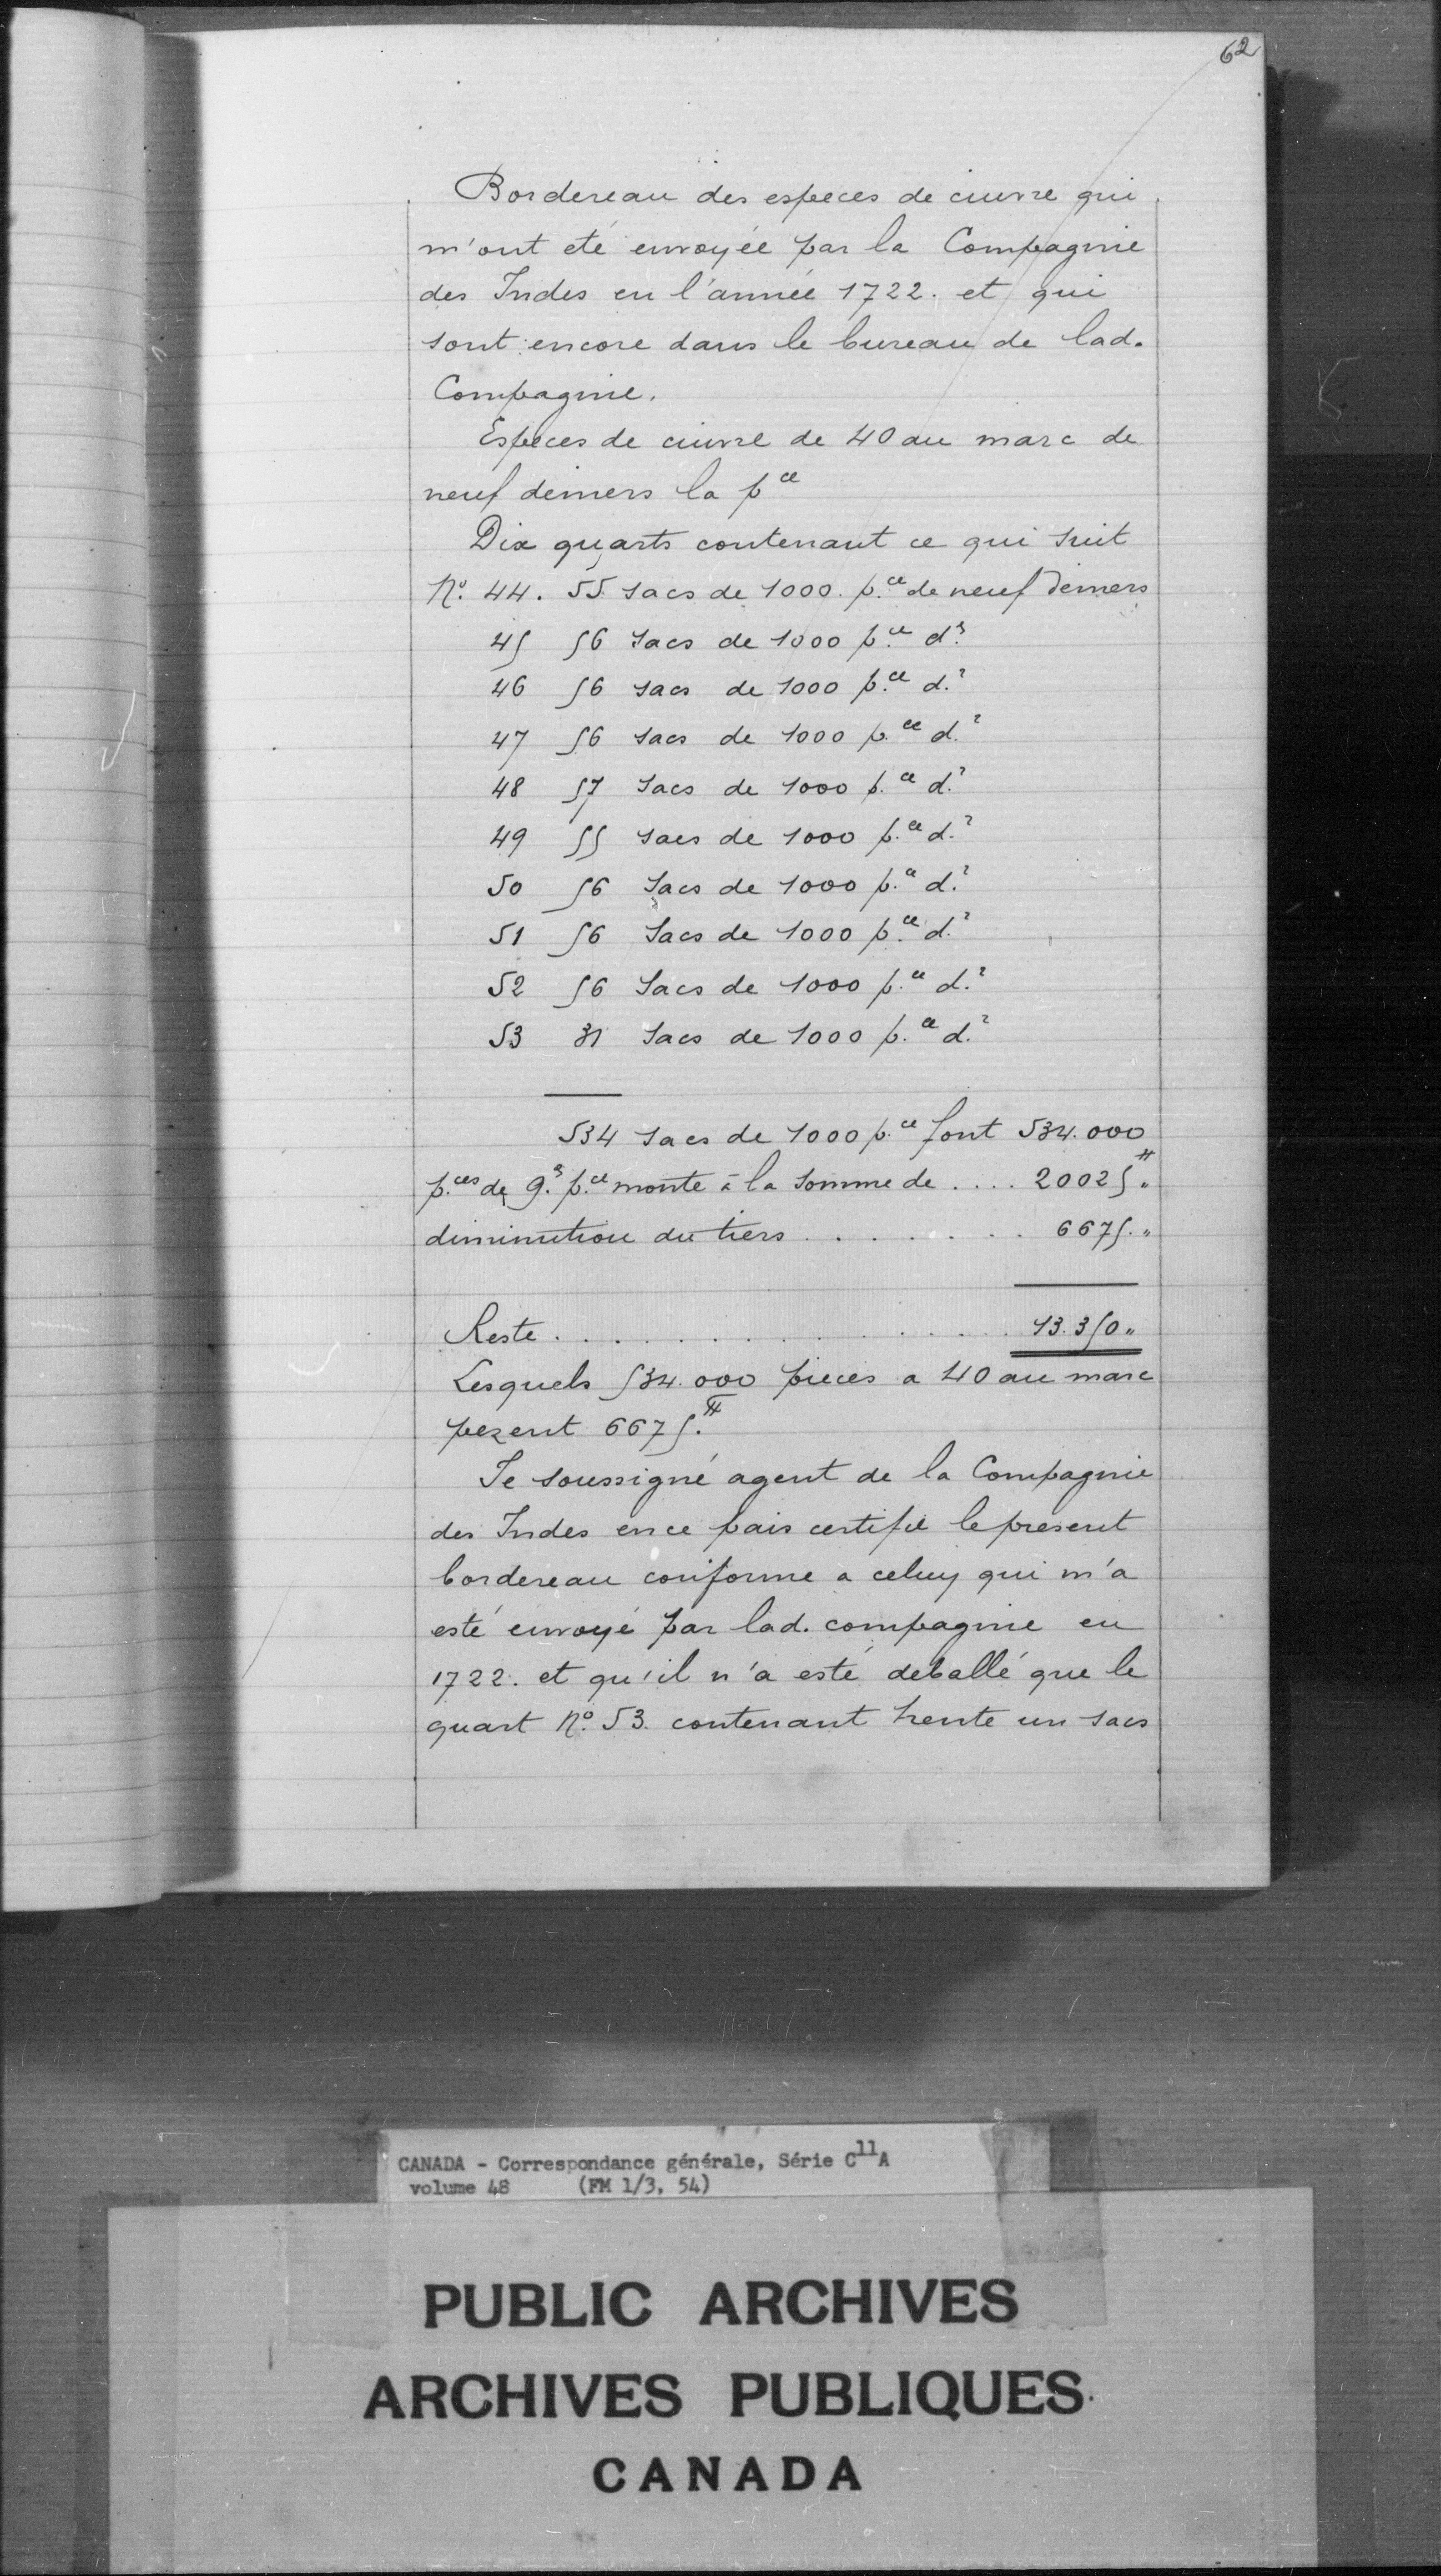 62
Bordereau des especes de cuivre qui
m'ont eté envoyée par la Compagnie
des Indes en l'année 1722. et qui
sont encore dans le bureau de lad.
Compagnie.
Especes de cuivre de 40 au marc de
neuf deniers la p.ce
Dix quarts contenant ce qui suit
No. 44. 55 sacs de 1000. p.ce de neuf deniers
45 56 sacs de 1000 p.ce d.?
46 56 sacs de 1000 p.ce d.?
47 56 sacs de 1000 p.ce d.?
48 57 sacs de 1000 p.ce d.?
49 55 sacs de 1000 p.ce d.?
50 56 sacs de 1000 p.ce d.?
51 56 sacs de 1000 p.ce d.?
52 56 sacs de 1000 p.ce d.?
53 31 sacs de 1000 p.ce d.?
534 sacs de 1000 p.ce font 534.000
p.ces de 9.? p.ce monte à la somme de .... 20025 ₶ "
diminution du tiers . . . . . . . . 6675. "
Reste . . . . . . . . . . . . . 13.350 "
Lesquels 534.000 pieces a 40 au marc
pezent 6675. ₶
Je soussigné agent de la Compagnie
des Indes en ce pais certifie le present
bordereau conforme a celuy qui m'a
esté envoyé par lad. compagnie en
1722. et qu'il n'a esté deballé que le
quart No. 53. contenant trente un sacs
CANADA - Correspondance générale, Série C11A
volume 48 (FM 1/3, 54)
PUBLIC ARCHIVES
ARCHIVES PUBLIQUES
CANADA